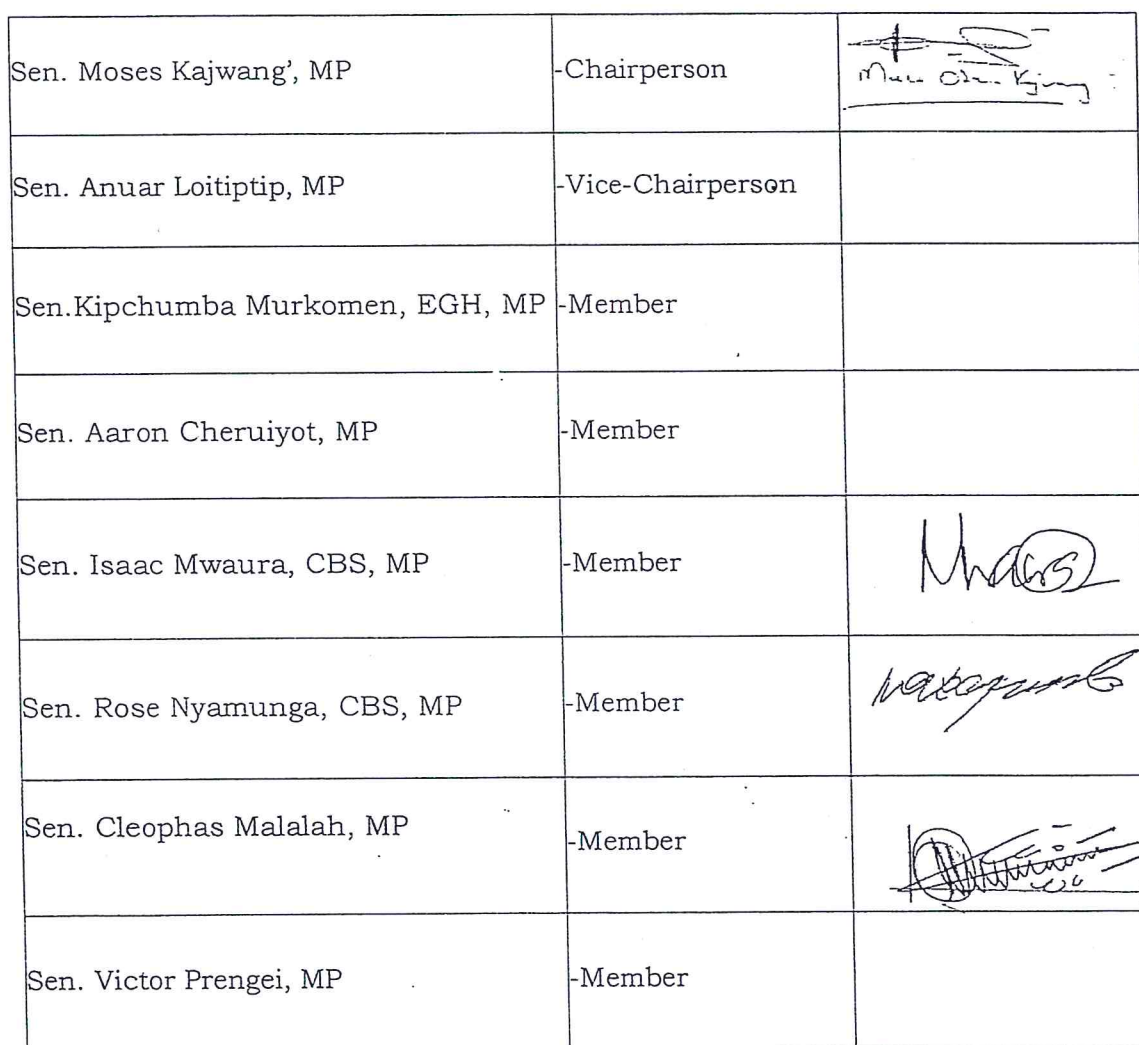 Sen. Moses Kajwang', MP -Chairperson
Sen. Anuar Loitiptip, MP -Vice-Chairperson
Sen.Kipchumba Murkomen, EGH, MP -Member
Sen. Aaron Cheruiyot, MP -Member
Sen. Isaac Mwaura, CBS, MP -Member
Sen. Rose Nyamunga, CBS, MP -Member
Sen. Cleophas Malalah, MP -Member
Sen. Victor Prengei, MP -Member